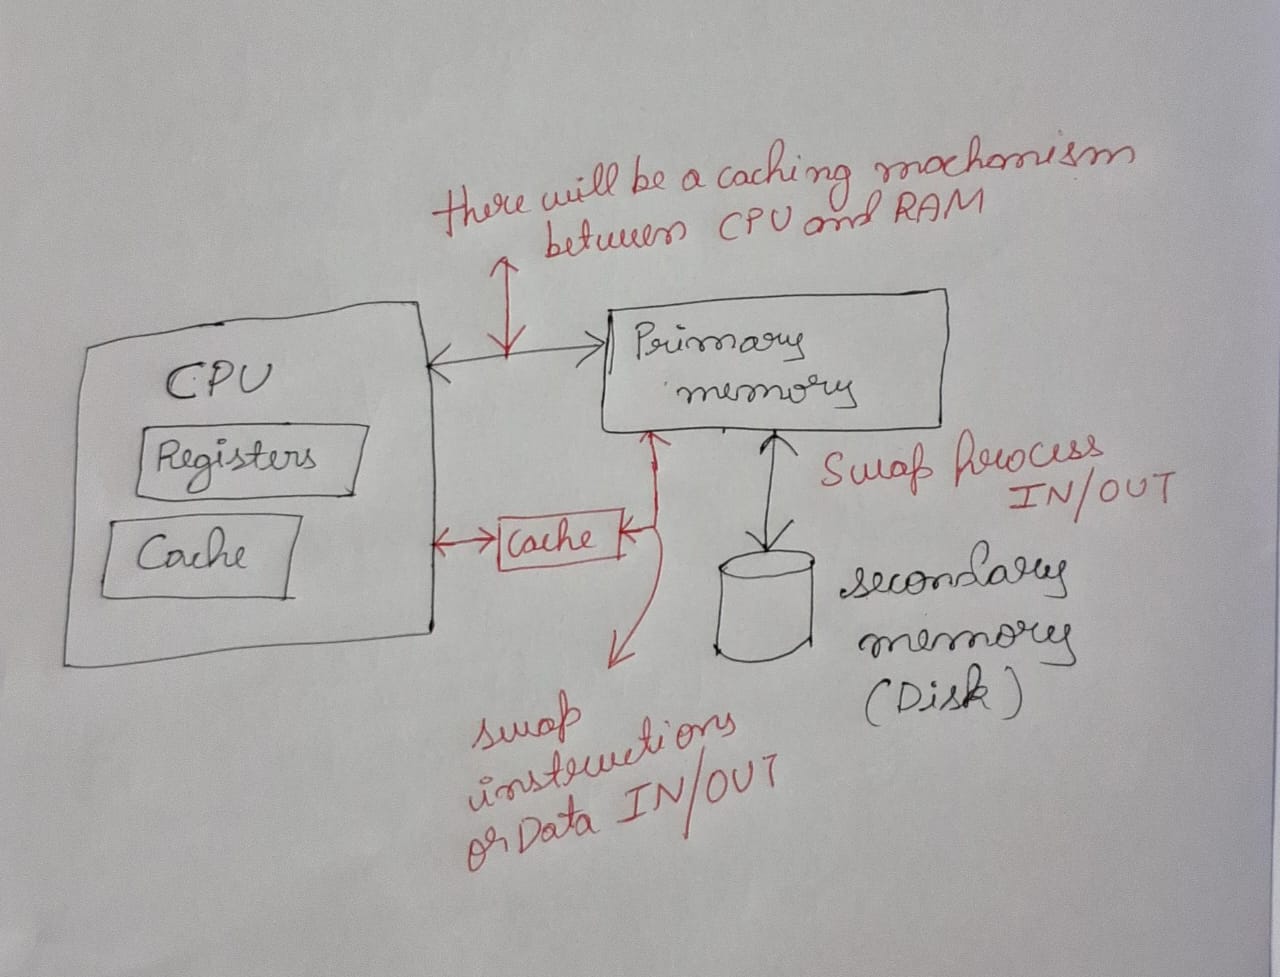 there will be a caching mechanism
between CPU and RAM
CPU
Registers
Cache
Primary
memory
Cache
Swap Process
IN/OUT
secondary
memory
(Disk)
swap
instructions
or Data IN/OUT